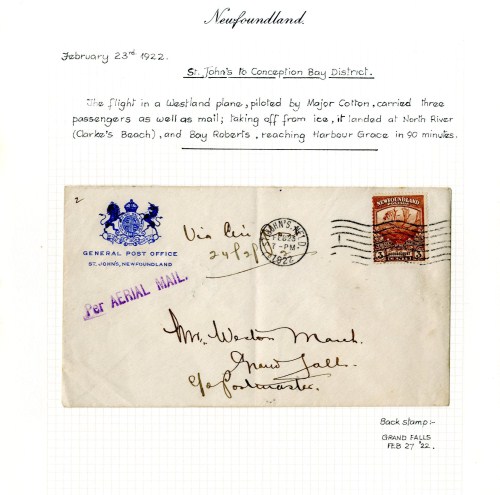 Newfoundland.
February 23rd 1922.
St. John's to Conception Bay District.
The flight in a Westland plane, piloted by Major Cotton, carried three
passengers as well as mail; taking off from ice, it landed at North River
(Clarke's Beach), and Bay Roberts, reaching Harbour Grace in 90 minutes.
2
GENERAL POST OFFICE
ST. JOHN'S, NEWFOUNDLAND
Per AERIAL MAIL.
Via Air
ST. JOHN'S, N.F.D.
FEB 23
7-PM
1922
NEWFOUNDLAND
3
Mr. Weston March
Grand Falls.
c/o Postmaster.
Back stamp:-
GRAND FALLS
FEB 27 '22.